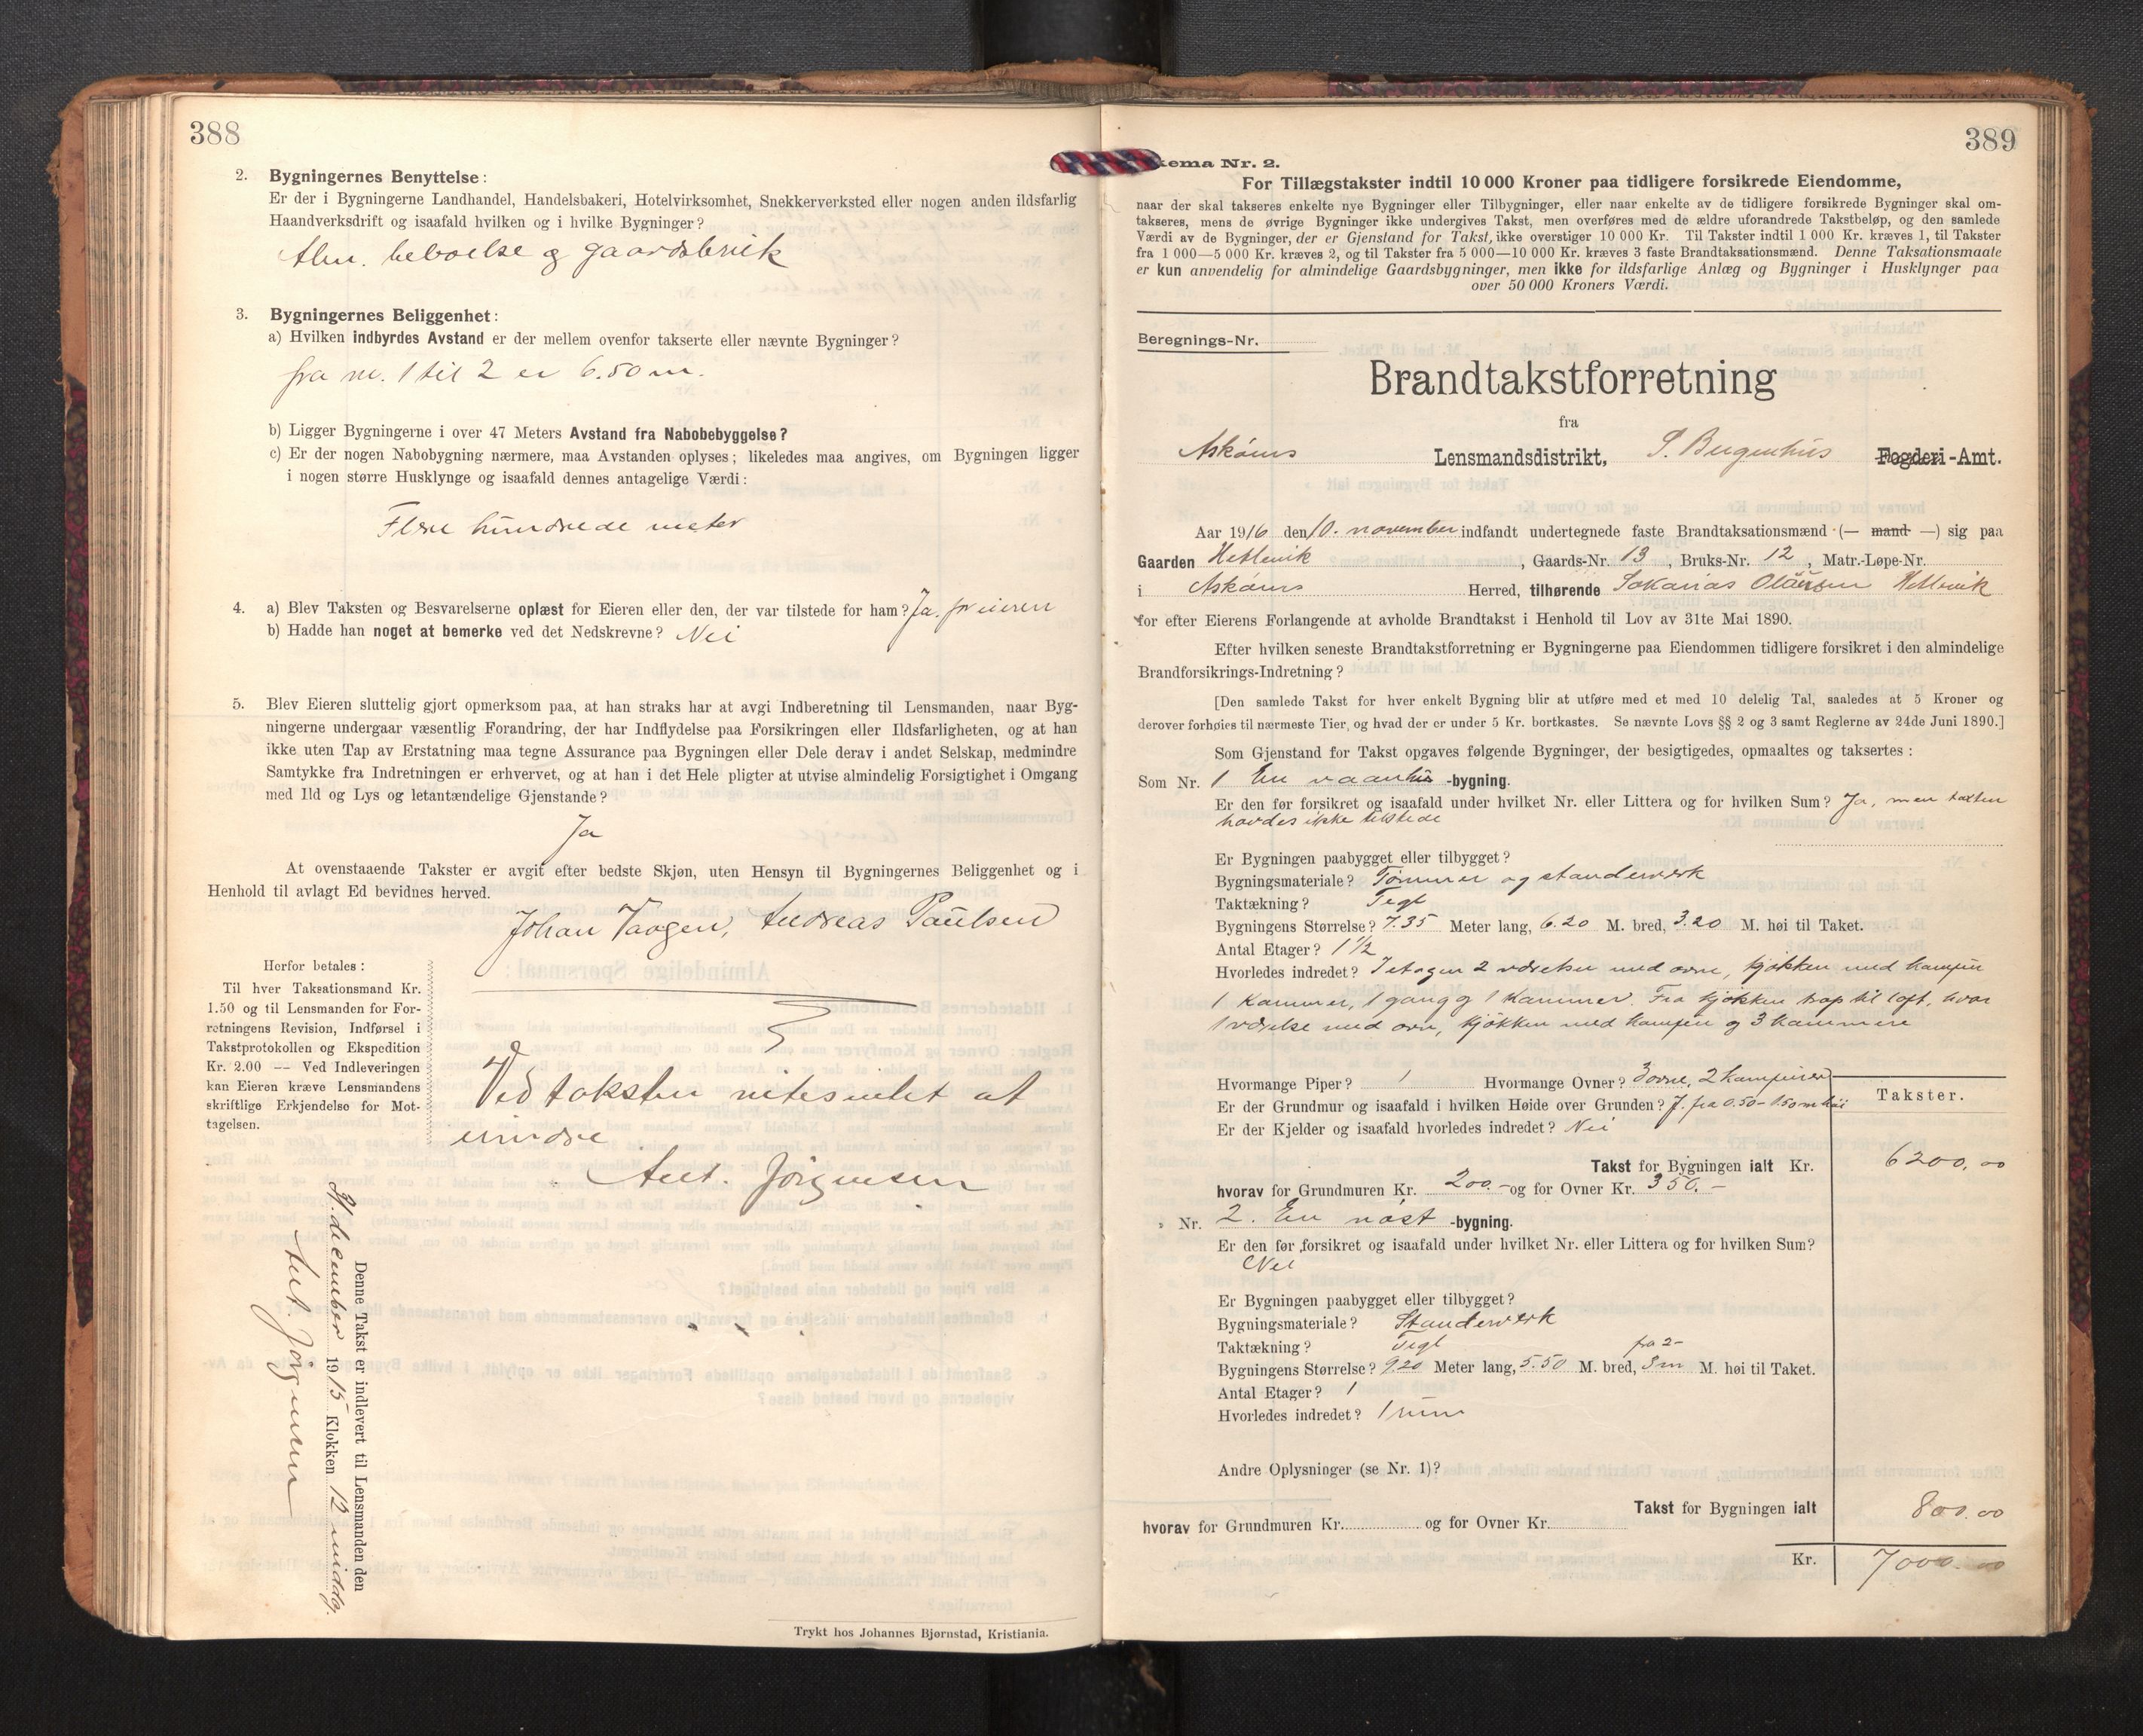 388
2. Bygningernes Benyttelse:
Er der i Bygningerne Landhandel, Handelsbakeri, Hotelvirksomhet, Snekkerverksted eller nogen anden ildsfarlig
Haandverksdrift og isaafald hvilken og i hvilke Bygninger?
Alm. beboelse og gaardsbruk
3. Bygningernes Beliggenhet:
a) Hvilken indbyrdes Avstand er der mellem ovenfor takserte eller nævnte Bygninger?
fra nr. 1 til 2 er 6.50 m.
b) Ligger Bygningerne i over 47 Meters Avstand fra Nabobebyggelse?
c) Er der nogen Nabobygning nærmere, maa Avstanden oplyses; likeledes maa angives, om Bygningen ligger
i nogen større Husklynge og isaafald dennes antagelige Værdi:
Flere hundrede meter
4. a) Blev Taksten og Besvarelserne oplæst for Eieren eller den, der var tilstede for ham? Ja, for eieren
b) Hadde han noget at bemerke ved det Nedskrevne? Nei
5. Blev Eieren sluttelig gjort opmerksom paa, at han straks har at avgi Indberetning til Lensmanden, naar Byg-
ningerne undergaar væsentlig Forandring, der har Indflydelse paa Forsikringen eller Ildsfarligheten, og at han
ikke uten Tap av Erstatning maa tegne Assurance paa Bygningen eller Dele derav i andet Selskap, medmindre
Samtykke fra Indretningen er erhvervet, og at han i det Hele pligter at utvise almindelig Forsigtighet i Omgang
med Ild og Lys og letantændelige Gjenstande?
Ja
At ovenstaaende Takster er avgit efter bedste Skjøn, uten Hensyn til Bygningernes Beliggenhet og i
Henhold til avlagt Ed bevidnes herved.
Johan Vaagen, Andreas Paulsen
Herfor betales:
Til hver Taksationsmand Kr.
1.50 og til Lensmanden for For-
retningens Revision, Indførsel i
Takstprotokollen og Ekspedition
Kr. 2.00 — Ved Indleveringen
kan Eieren kræve Lensmandens
skriftlige Erkjendelse for Mot-
tagelsen.
Ved taksten intet at
Ant. Jörgensen
Denne Takst er indlevert til Lensmanden den
9. december 1915 Klokken 12 middg.
Ant. Jörgensen
Trykt hos Johannes Bjørnstad, Kristiania.
389
kema Nr. 2.
For Tillægstakster indtil 10 000 Kroner paa tidligere forsikrede Eiendomme,
naar der skal takseres enkelte nye Bygninger eller Tilbygninger, eller naar enkelte av de tidligere forsikrede Bygninger skal om-
takseres, mens de øvrige Bygninger ikke undergives Takst, men overføres med de ældre uforandrede Takstbeløp, og den samlede
Værdi av de Bygninger, der er Gjenstand for Takst, ikke overstiger 10 000 Kr. Til Takster indtil 1 000 Kr. kræves 1, til Takster
fra 1 000—5 000 Kr. kræves 2, og til Takster fra 5 000—10 000 Kr. kræves 3 faste Brandtaksationsmænd. Denne Taksationsmaate
er kun anvendelig for almindelige Gaardsbygninger, men ikke for ildsfarlige Anlæg og Bygninger i Husklynger paa
over 50 000 Kroners Værdi.
Beregnings-Nr.
Brandtakstforretning
fra
Askøens Lensmandsdistrikt, S. Bergenhus Fogderi-Amt.
Aar 1916 den 10. november indfandt undertegnede faste Brandtaksationsmænd (— mand —) sig paa
Gaarden Hetlevik, Gaards-Nr. 13, Bruks-Nr. 12, Matr.-Løpe-Nr.
i Askøens Herred, tilhørende Sakarias Olaisen Hetlevik
for efter Eierens Forlangende at avholde Brandtakst i Henhold til Lov av 31te Mai 1890.
Efter hvilken seneste Brandtakstforretning er Bygningerne paa Eiendommen tidligere forsikret i den almindelige
Brandforsikrings-Indretning?
[Den samlede Takst for hver enkelt Bygning blir at utføre med et med 10 delelig Tal, saaledes at 5 Kroner og
derover forhøies til nærmeste Tier, og hvad der er under 5 Kr. bortkastes. Se nævnte Lovs §§ 2 og 3 samt Reglerne av 24de Juni 1890.]
Som Gjenstand for Takst opgaves følgende Bygninger, der besigtigedes, opmaaltes og taksertes:
Som Nr. 1 En vaanhus -bygning.
Er den før forsikret og isaafald under hvilket Nr. eller Littera og for hvilken Sum? Ja, men taxten
havdes ikke tilstede
Er Bygningen paabygget eller tilbygget?
Bygningsmateriale? Tømmer og standerverk
Taktækning? Tegl
Bygningens Størrelse? 7.35 Meter lang, 6.20 M. bred, 3.20 M. høi til Taket.
Antal Etager? 1½
Hvorledes indredet? I etagen 2 værelser med ovne, kjøkken med kamfin
1 kammer, 1 gang og 1 kammer. Fra kjøkken trap til loft, hvor
1 værelse med ovn, kjøkken med kamfin og 3 kammere
Hvormange Piper? 1 Hvormange Ovner? 3 ovne, 2 kamfiner
Er der Grundmur og isaafald i hvilken Høide over Grunden? J. fra 0.50 – 1.50 m høi
Er der Kjelder og isaafald hvorledes indredet? Nei
Takster.
Takst for Bygningen ialt Kr. 6200,00
hvorav for Grundmuren Kr. 200.- og for Ovner Kr. 350.-
" Nr. 2. En nøst -bygning.
Er den før forsikret og isaafald under hvilket Nr. eller Littera og for hvilken Sum?
Nei
Er Bygningen paabygget eller tilbygget?
Bygningsmateriale? Standerverk
Taktækning? Tegl fra 2-
Bygningens Størrelse? 9.20 Meter lang, 5.50 M. bred, 3 m M. høi til Taket.
Antal Etager? 1
Hvorledes indredet? 1 rum
Andre Oplysninger (se Nr. 1)?
Takst for Bygningen ialt 800.00
hvorav for Grundmuren Kr. og for Ovner Kr.
Kr. 7000.00